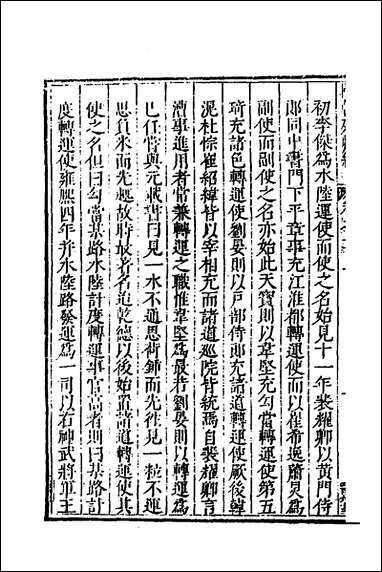 初李傑爲水陸運使而使之名始見十一年裴耀卿以黃門侍
郎同中書門下平章事充江淮都轉運使而以崔希逸蕭炅爲
副使而副使之名亦始此天寶則以韋堅充勾當轉運使第五
琦充諸色轉運使劉晏則以戶部侍郎充諸道轉運使厥後韓
滉杜悰崔紹緯皆以宰相充而諸道巡院皆統焉自裴耀卿言
漕事進用者常兼轉運之職惟韋堅爲最若劉晏則以轉運爲
己任嘗與元載書曰見一水不通思荷鍤而先往見一粒不運
思負米而先趨故時最著名迨乾德以後始置諸道轉運使其
使之名但曰勾當某路水陸計度轉運事官高者則曰某路計
度轉運使雍熙四年并水陸路發運爲一司以右神武將軍王